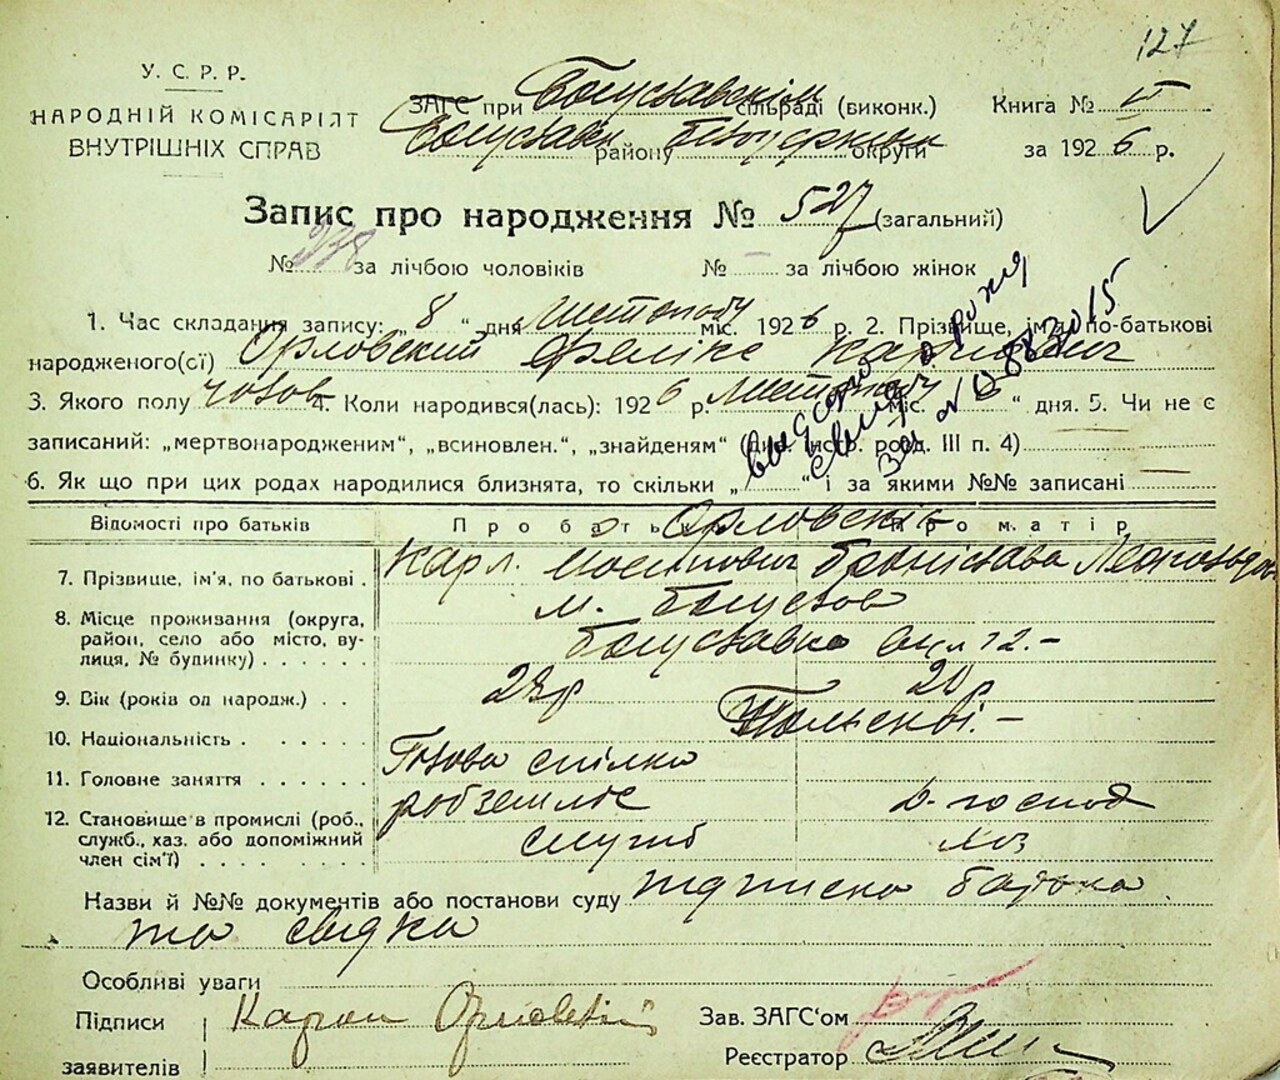 127
У. С. Р. Р.
НАРОДНІЙ КОМІСАРІЯТ
ВНУТРІШНІХ СПРАВ
ЗАГС при Богуславскім сільраді (виконк.)
Богуслав району Білоцерківськ округи
Книга № V
за 1926 р.
Запис про народження № 527 (загальний)
№ 278 за лічбою чоловіків № – за лічбою жінок
1. Час складання запису: „8“ дня листопаду міс. 1926 р. 2. Прізвище, ім'я, по-батькові
народженого(сї) Орловский Фелікс Карлович
3. Якого полу чолов 4. Коли народився(лась): 1926 р. листопаду міс. „ “ дня. 5. Чи не є
записаний: „мертвонародженим“, „всиновлен.“, „знайденям“ (Див. інстр. розд. III п. 4)
6. Як що при цих родах народилися близнята, то скільки „ “ і за якими №№ записані
Відомості про батьків Про батька Про матір
Орловскі
7. Прізвище, ім'я, по батькові . Карл Иосипович Броніслава Леопольдов
8. Місце проживання (округа, район, село або місто, вулиця, № будинку) . . . . . . м. Богуслав
Богуславка вул 12.–
9. Вік (років од народж.) . . 28р 20 р
10. Національність . . . . . . Польскі.–
11. Головне заняття . . . . . . Голова спілки
робземліс д. господ
12. Становище в промислі (роб., служб., хаз. або допоміжний член сім'ї) . . . . . . служб хоз
Назви й №№ документів або постанови суду підписка батька
та свідка
Особливі уваги
Підписи заявителів Карол Орловскій
Зав. ЗАГС'ом
Реєстратор